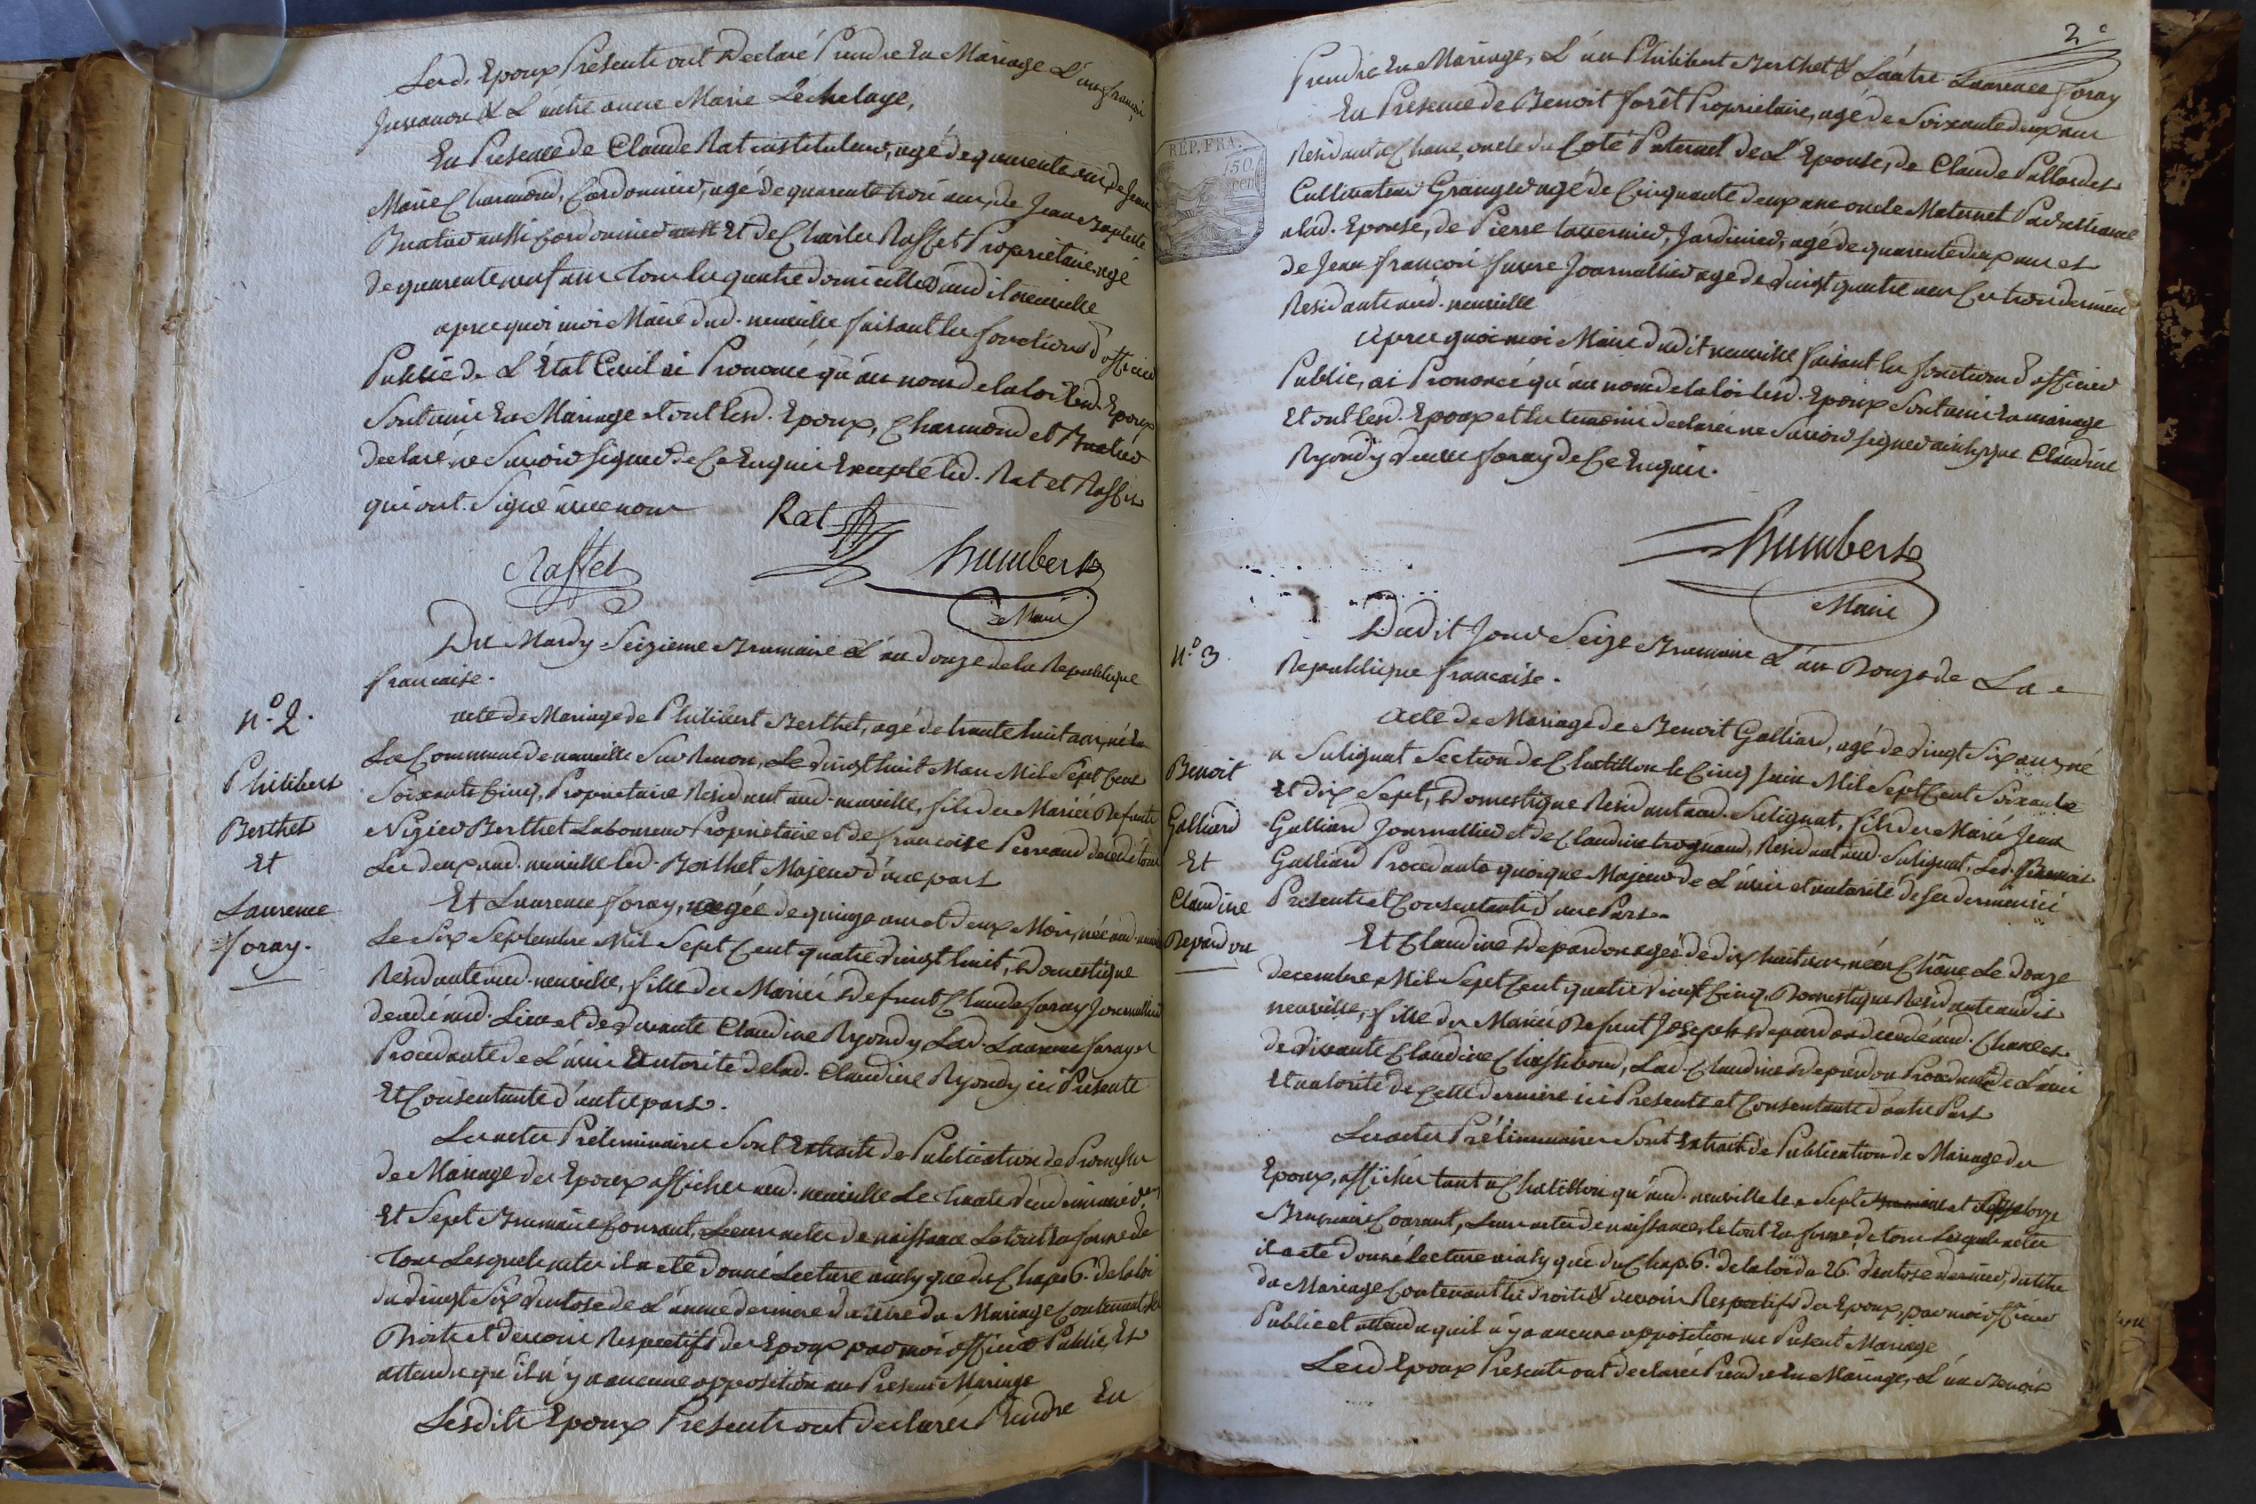 Lesd. Epoux Présents ont Declaré Prendre En Mariage L'un françois
Juvanon & L'autre anne Marie Léchelage,
En Presence de Claude Rat instituteur, agé de quarente ans, de Jean
Marie Charmond, Cordonnier, agé de quarente trois ans, de Jean Baptiste
Buatier aussi Cordonnier Et de Charles Raffet Proprietaire agé
de quarente neuf ans tous les quatre domicilies aud. neuville
apres quoi moi Maire dud. neuville faisant les fonctions d'officier
Public de L'État Civil ai Prononcé qu'au nom de la loi lesd. Epoux
Sont unis En Mariage et ont lesd. Epoux, Charmond et Buatier
declaré ne Savoir signer de Ce Enquis Excepté lesd. Rat et Raffet
qui ont Signé avec nous
Rat
Raffet
humbert
Maire
Du Mardy Seizieme Brumaire L'an douze de la Republique
francaise.
n.º 2.
Philibert
Berthet
Et
Laurence
foray.
acte de Mariage de Philibert Berthet, agé de trante huit ans, né En
La Commune de neuville Sur Renon, Le vingt huit Mars Mil Sept Cent
Soixante Cinq, Proprietaire Résidant aud. neuville, fils des Mariés Defunts
Nizier Berthet Laboureur Proprietaire et de françoise Perraud décédé tous
Les deux aud. neuville led. Berthet Majeur d'une part
Et Laurence foray, agée de quinze ans et deux Mois, née aud. neuville
Le Six Septembre Mil Sept Cent quatre vingt huit, Domestique
Residante aud. neuville, fille des Mariés Defunt Claude foray Journallier
decedé aud. Lieu et de vivante Claudine Ryondy Lad. Laurence foray
Procedante de L'avis Et autorité de lad. Claudine Ryondy ici Présente
Et Consentante d'autre part.
Les actes Préliminaires Sont Extraits de Publication de Promesses
de Mariage des Epoux affichés aud. neuville Le trante vendemiaire der
Et Sept Brumaire Courant, Leurs actes de naissance Le tout En forme de
Tous Lesquels actes il a eté donné Lecture ainsy que du Chap. 6. de la loi
du vingt Six ventose de L'année derniere du titre du Mariage Contenant les
Droits et devoirs Respectifs des Epoux par moi officier Public, Et
attendu qu'il n'y a aucune opposition au Present Mariage
Lesdits Epoux Presents ont declarés Prendre En
2e
Prendre En Mariage, L'un Philibert Berthet & L'autre Laurence foray
En Présence de Benoit forêt Proprietaire, agé de Soixante deux ans
Residant a Chane, oncle du Coté Paternel de L'Epouse, de Claude
Cultivateur Granger agé de Cinquante deux ans oncle Maternel Par alliance
a lad. Epouse, de Pierre tavernier, Jardinier, agé de quarente deux ans et
de Jean françois favre Journallier agé de vingt quatre ans Ces trois derniers
Residants aud. neuville
REP. FRA.
50
cen
Apres quoi moi Maire dudit neuville faisant les fonctions d'officier
Public, ai Prononcé qu'au nom de la loi lesd. Epoux Sont unis En mariage
Et ont lesd. Epoux et les temoins declarés ne Savoir signer ainsy que Claudine
Ryondy veuve foray de Ce Enquis.
humbert
Maire
n.º 3.
Dudit Jour Seize Brumaire L'an Douze de La
Republique francaise.
Benoit
Galliard
Et
Claudine
Depardon
Acte de Mariage de Benoit Galliard, agé de vingt Six ans, né
a Sulignat Section de Chatillon le Cinq Juin Mil Sept Cent Soixante
Et dix Sept, Domestique Residant aud. Sulignat, fils des Mariés Jean
Galliard Journallier et de Claudine trognard, Residant aud. Sulignat, Led. Benoit
Galliard Procedante quoique Majeur de L'avis et autorité de ses derniers ici
Présents et Consentants d'une Part.
Et Claudine Depardon agée de dix huit ans, née a Chane Le douze
decembre Mil Sept Cent quatre vingt Cinq, Domestique Residante audit
neuville, fille des Mariés Defunt Joseph Depardon decedé aud. Chane et
de vivante Claudine Lad. Claudine Depardon Procedante de L'avis
Et autorité de Cette derniere ici Presente et Consentante d'autre Part
Les actes Préliminaires Sont Extraits de Publication de Mariage des
Epoux, affichés tant a Chatillon qu'aud. neuville les Sept et quatorze
Brumaire Courant, Leurs actes de naissance, le tout En forme, de tous Lesquels actes
il a eté donné lecture ainsy que du Chap. 6. de la loi du 26. ventose dernier, du titre
du Mariage Contenant les droits & devoirs Respectifs des Epoux, par moi officier
Public et attendu qu'il n'y a aucune opposition au Présent Mariage
Lesd Epoux Présents ont declarés Prendre En Mariage, L'un Benoit